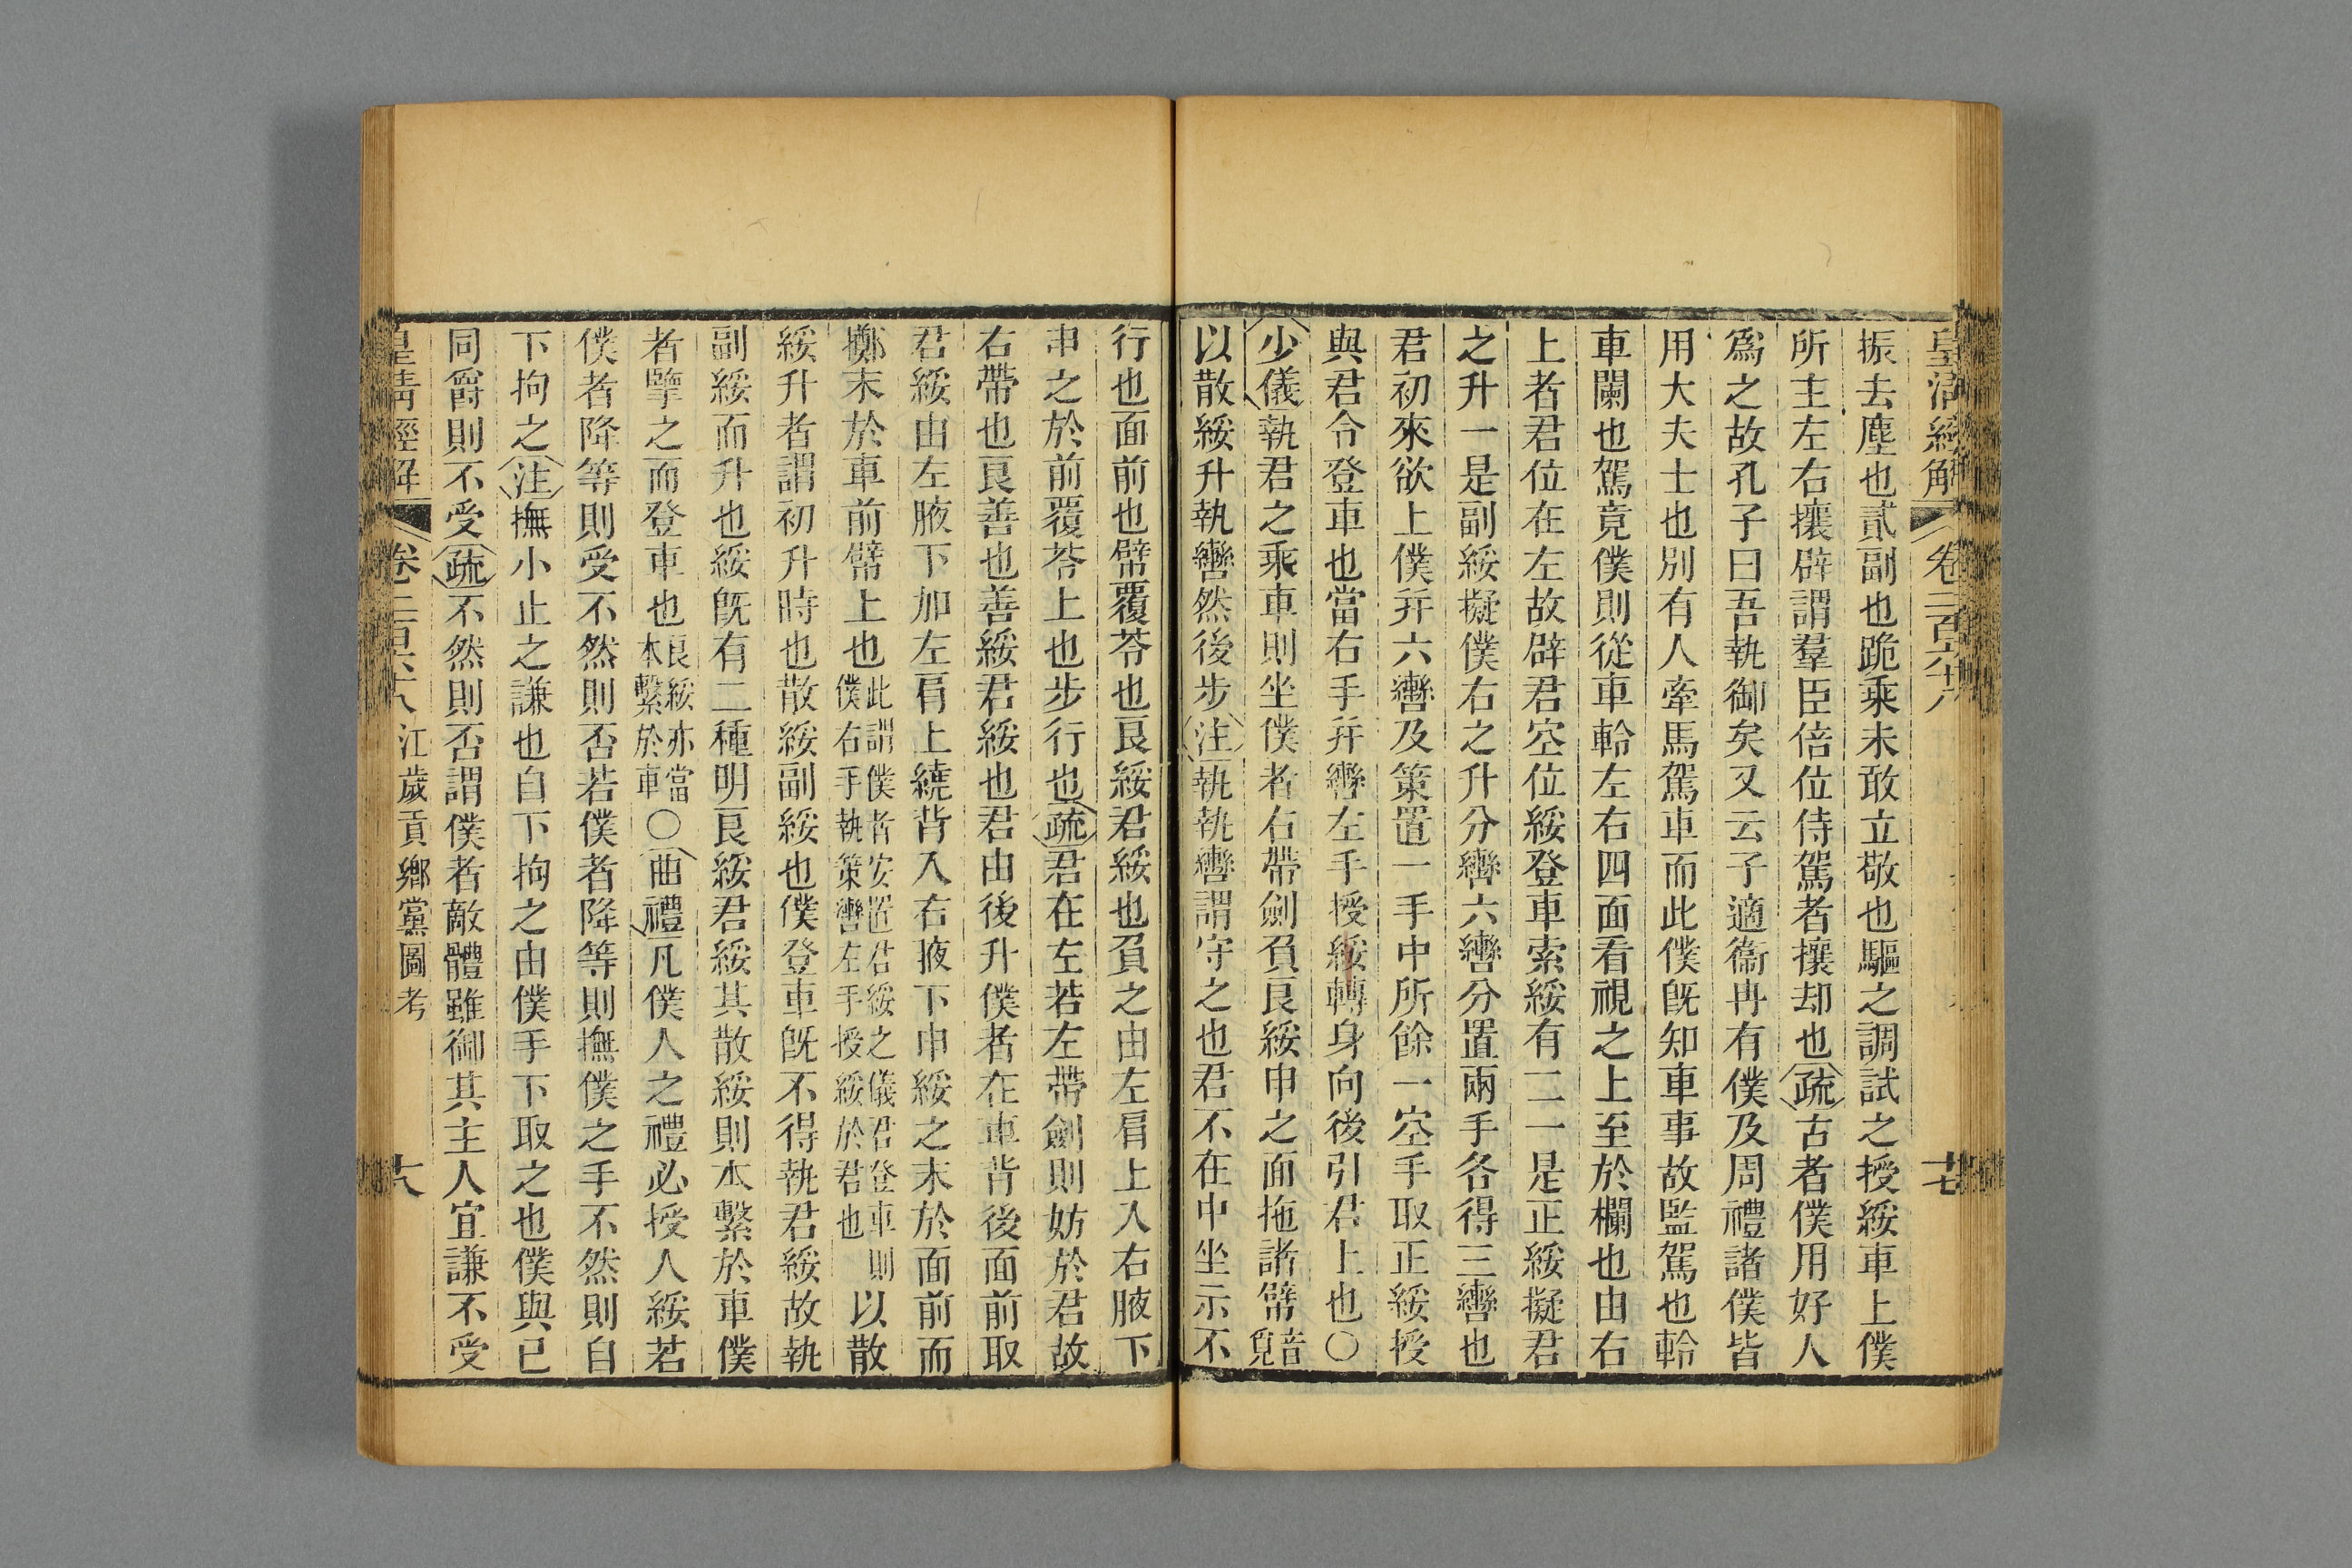 皇清經解 卷二百六十八 七
振去塵也貳副也跪乘未敢立敬也驅之調試之授綏車上僕
所主左右攘辟謂羣臣倍位侍駕者攘却也疏古者僕用好人
爲之故孔子曰吾執御矣又云子適衞冉有僕及周禮諸僕皆
用大夫士也別有人牽馬駕車而此僕旣知車事故監駕也軨
車闌也駕竟僕則從車軨左右四面看視之上至於欄也由右
上者君位在左故辟君空位綏登車索綏有二一是正綏擬君
之升一是副綏擬僕右之升分轡六轡分置兩手各得三轡也
君初來欲上僕幷六轡及策置一手中所餘一空手取正綏授
與君令登車也當右手幷轡左手授綏轉身向後引君上也○
少儀執君之乘車則坐僕者右帶劍負良綏申之面拖諸幦音覓
以散綏升執轡然後步注執執轡謂守之也君不在中坐示不
行也面前也幦覆苓也良綏君綏也負之由左肩上入右腋下
申之於前覆苓上也步行也疏君在左若左帶劍則妨於君故
右帶也良善也善綏君綏也君由後升僕者在車背後面前取
君綏由左腋下加左肩上繞背入右腋下申綏之末於面前而
擲末於車前幦上也此謂僕者安置君綏之儀君登車則僕右手執策轡左手授綏於君也以散
綏升者謂初升時也散綏副綏也僕登車旣不得執君綏故執
副綏而升也綏旣有二種明良綏君綏其散綏則本繫於車僕
者擥之而登車也良綏亦當本繫於車○曲禮凡僕人之禮必授人綏若
僕者降等則受不然則否若僕者降等則撫僕之手不然則自
下拘之注撫小止之謙也自下拘之由僕手下取之也僕與己
同爵則不受疏不然則否謂僕者敵體雖御其主人宜謙不受
皇清經解 卷二百六十八 江歲貢鄉黨圖考 大